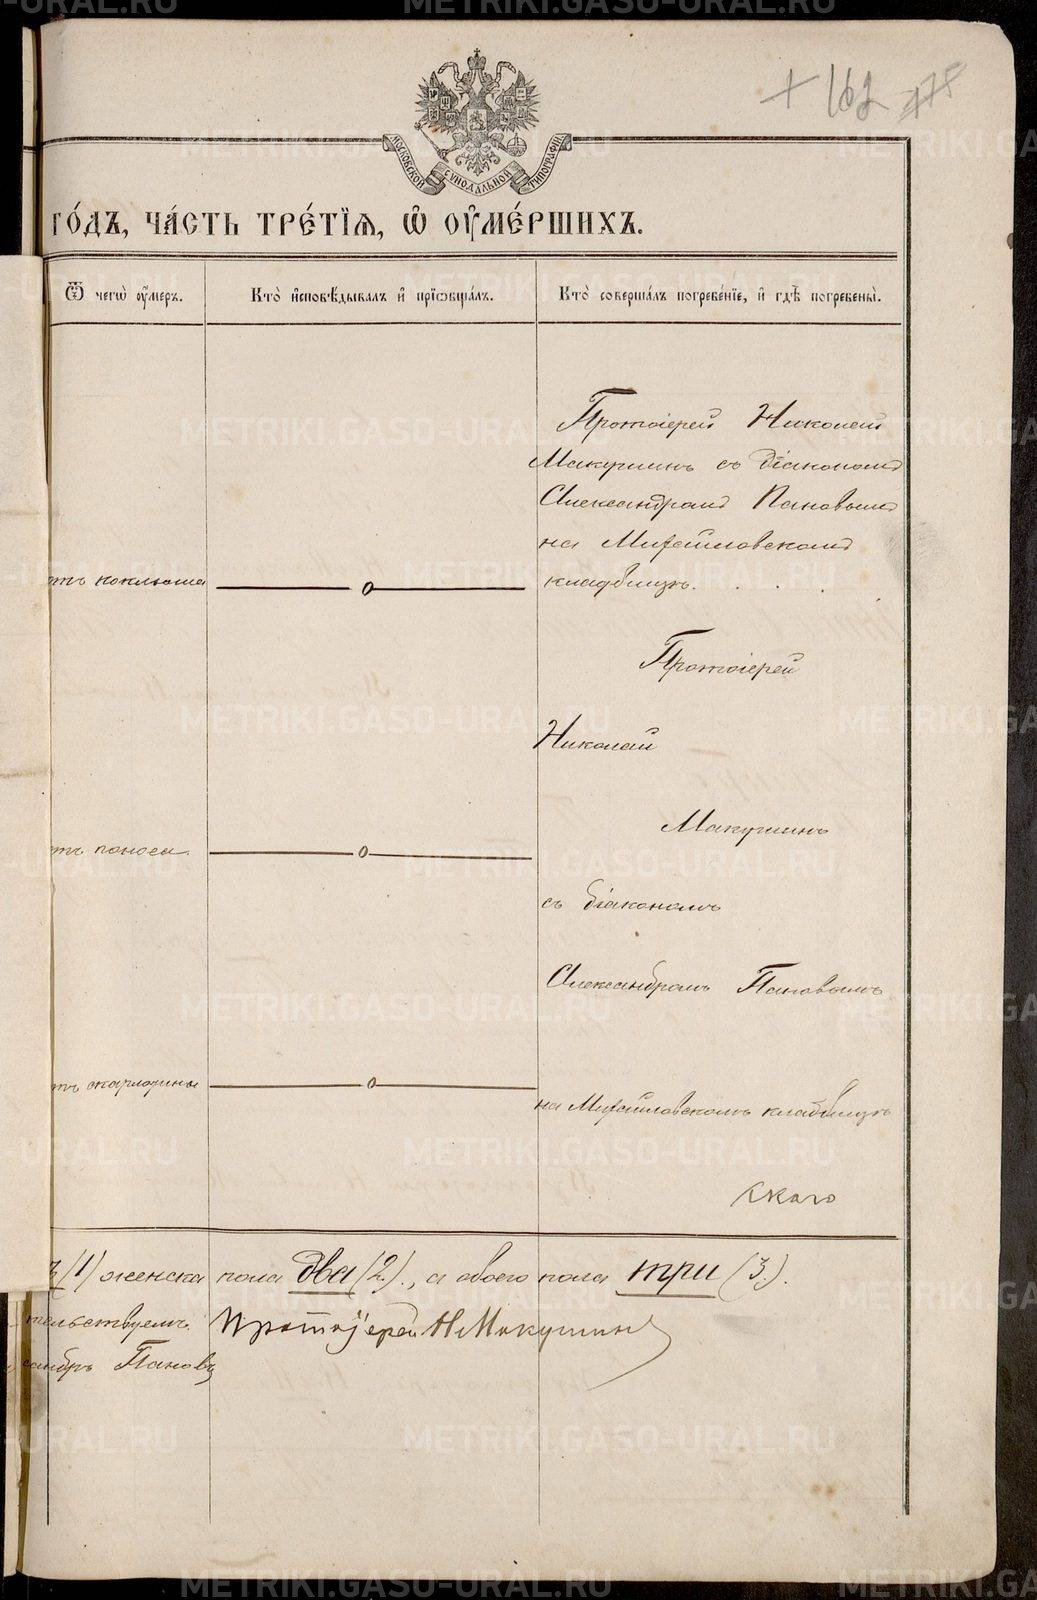 + 162 178
МОСКОВСКОЙ СѴНОДАЛЬНОЙ ТИПОГРАФІИ
ГО́ДЪ, ЧА́СТЬ ТРЕ́ТІѦ, Ѡ҆ ОУ҆МЕ́РШИХЪ.
Ѿ чегѡ̀ оу҆́меръ.
Кто̀ и҆сповѣ́дывалъ и҆ прїѡбща́лъ.
Кто̀ соверша́лъ погребе́нїе, и҆ гдѣ̀ погребены̀.
Протоіерей Николай
Макушинъ съ діакономъ
Александромъ Пановымъ
на Михайловскомъ
кладбищѣ.
отъ коклюша
Протоіерей
Николай
Макушинъ
отъ поноса.
съ діакономъ
Александромъ Пановымъ
отъ скарлатины
на Михайловскомъ кладбищѣ
ъ (1) женска пола два (2)., а обоего пола три (3.).
тельствуемъ: Протоіерей Н Макушинъ
сандръ Пановъ